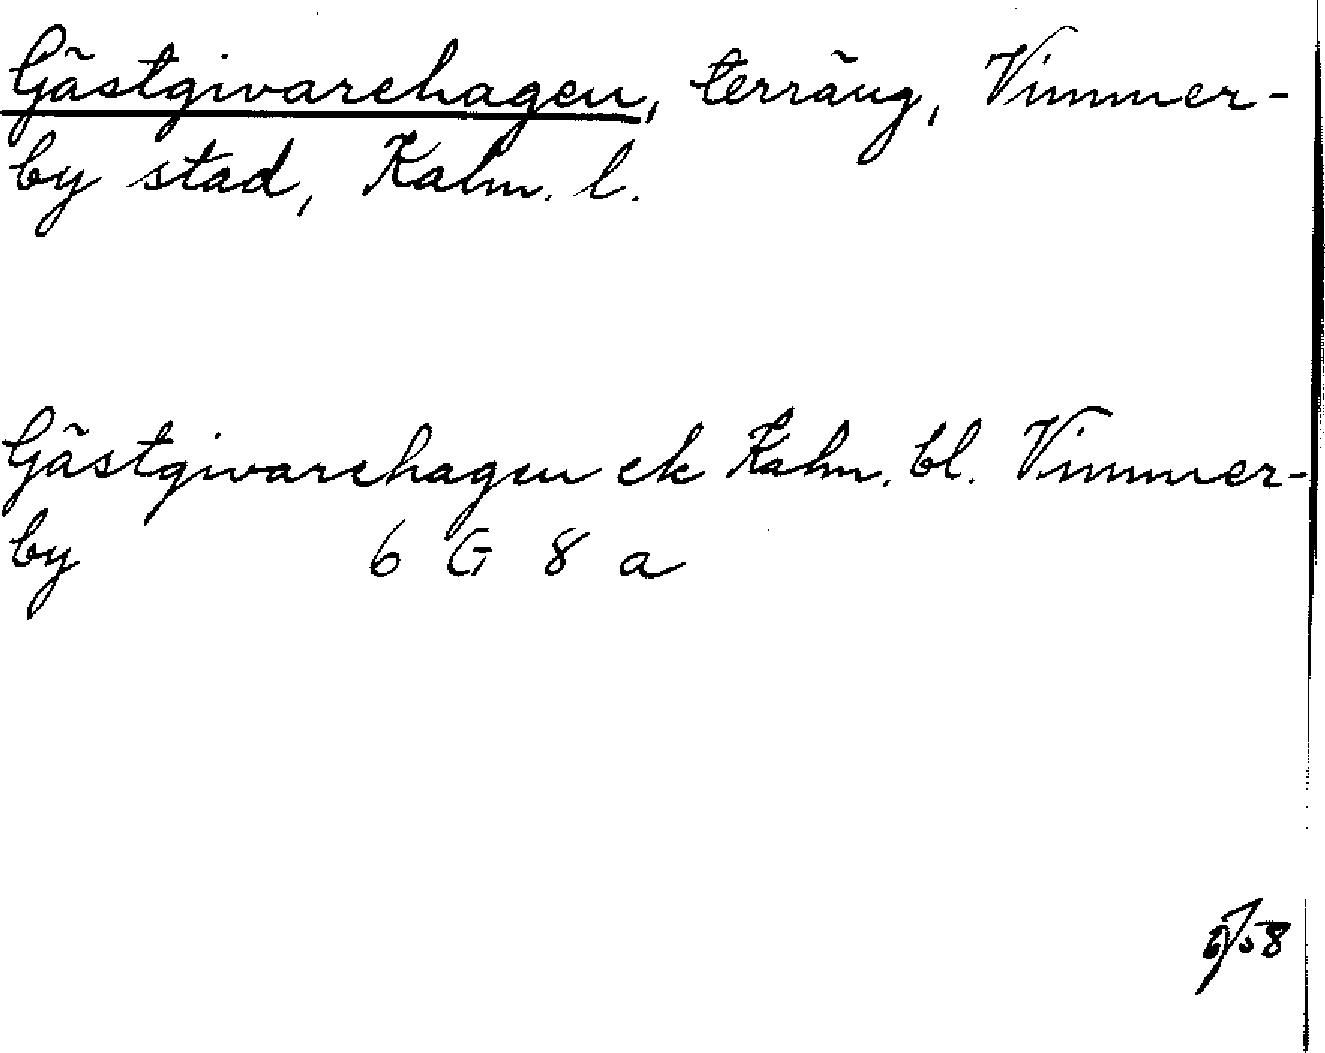 Gästgivarehagen, terräng, Vimmer-
by stad, Kalm. l.
Gästgivarehagen ek Kalm. bl. Vimmer-
by 6 G 8 a